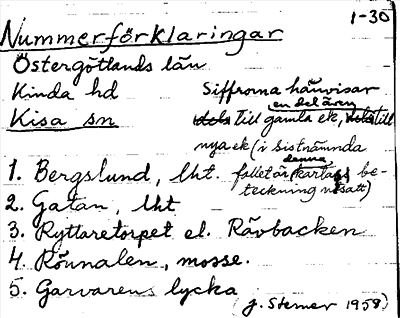 1-30
Nummerförklaringar
Östergötlands län
Kinda hd
Siffrorna hänvisar
en del även
Kisa sn
dels till gamla ek, dels till
nya ek (i sistnämnda
denna
1. Bergslund, lht.
fallet är kartans be-
teckning utsatt)
2. Gatan, lht
3. Ryttaretorpet el. Rävbacken
4. Rönnalen, mosse.
5. Garvarens lycka
(J. Stemer 1958)